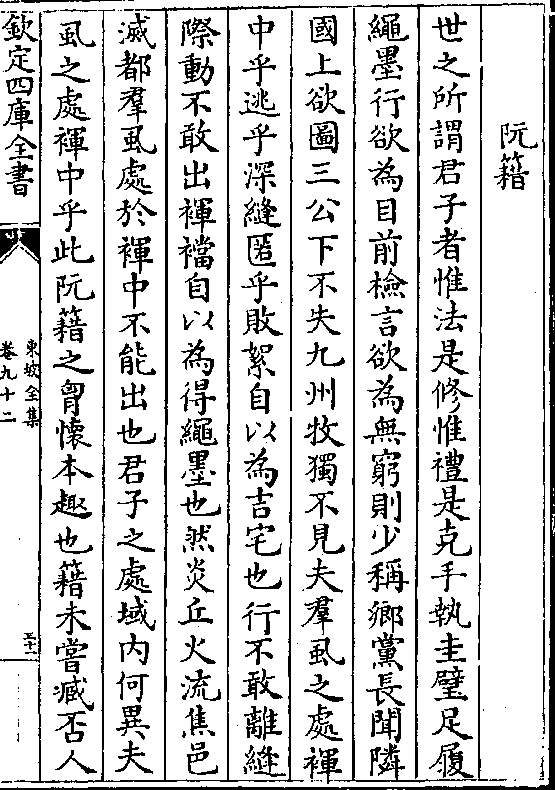 阮籍
世之所謂君子者惟法是修惟禮是克手執圭璧足履
繩墨行欲為目前檢言欲為無窮則少稱鄉黨長聞隣
國上欲圖三公下不失九州牧獨不見夫羣虱之處褌
中乎逃乎深縫匿乎敗絮自以為吉宅也行不敢離縫
際動不敢出褌襠自以為得繩墨也然炎丘火流焦邑
滅都羣虱處於褌中不能出也君子之處域内何異夫
虱之處褌中乎此阮籍之胷懷本趣也籍未嘗臧否人
欽定四庫全書
東坡全集
卷九十二